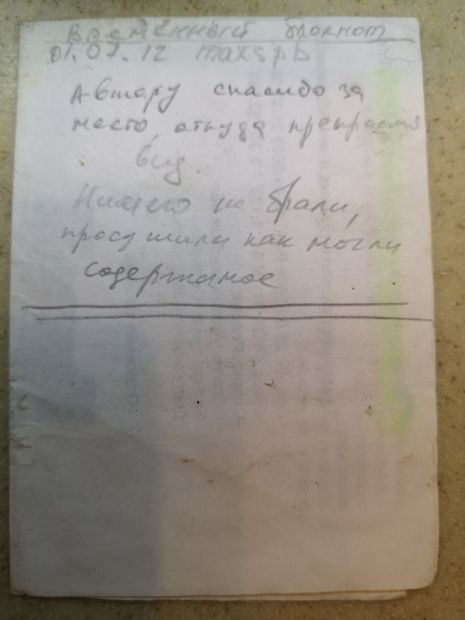 Временный блокнот
01.07.12 maxspb
Автору спасибо за
место, откуда прекрасный
вид.
Ничего не брали,
просушили как могли
содержимое